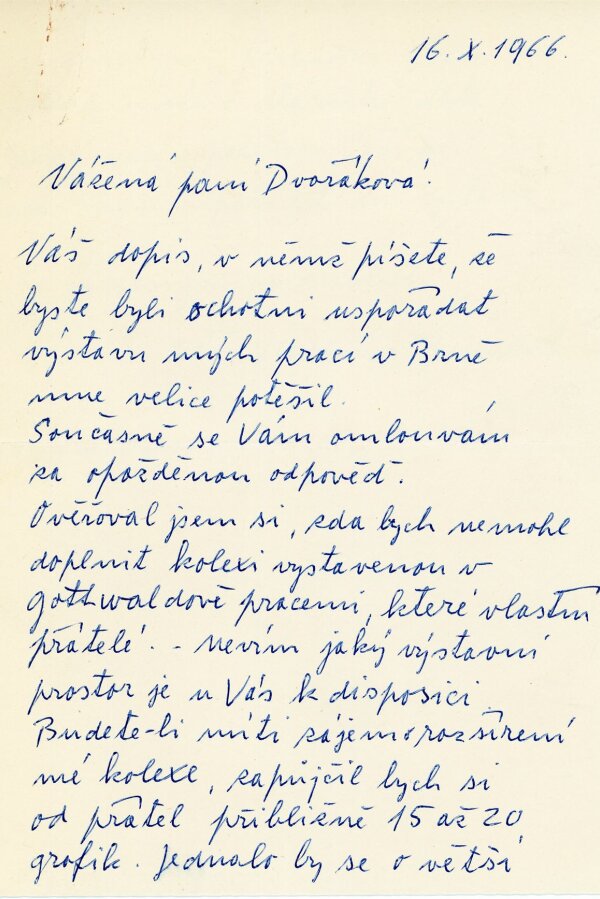 16. X. 1966.
Vážená paní Dvořáková!
Váš dopis, v němž píšete, že
byste byli ochotni uspořádat
výstavu mých prací v Brně
mne velice potěšil.
Současně se Vám omlouvám
za opožděnou odpověď.
Ověřoval jsem si, zda bych nemohl
doplnit kolexi vystavenou v
Gottwaldově pracemi, které vlastní
přátelé. - Nevím jaký výstavní
prostor je u Vás k disposici.
Budete-li míti zájem o rozšíření
mé kolexe, zapůjčil bych si
od přátel přibližně 15 až 20
grafik. Jednalo by se o větší